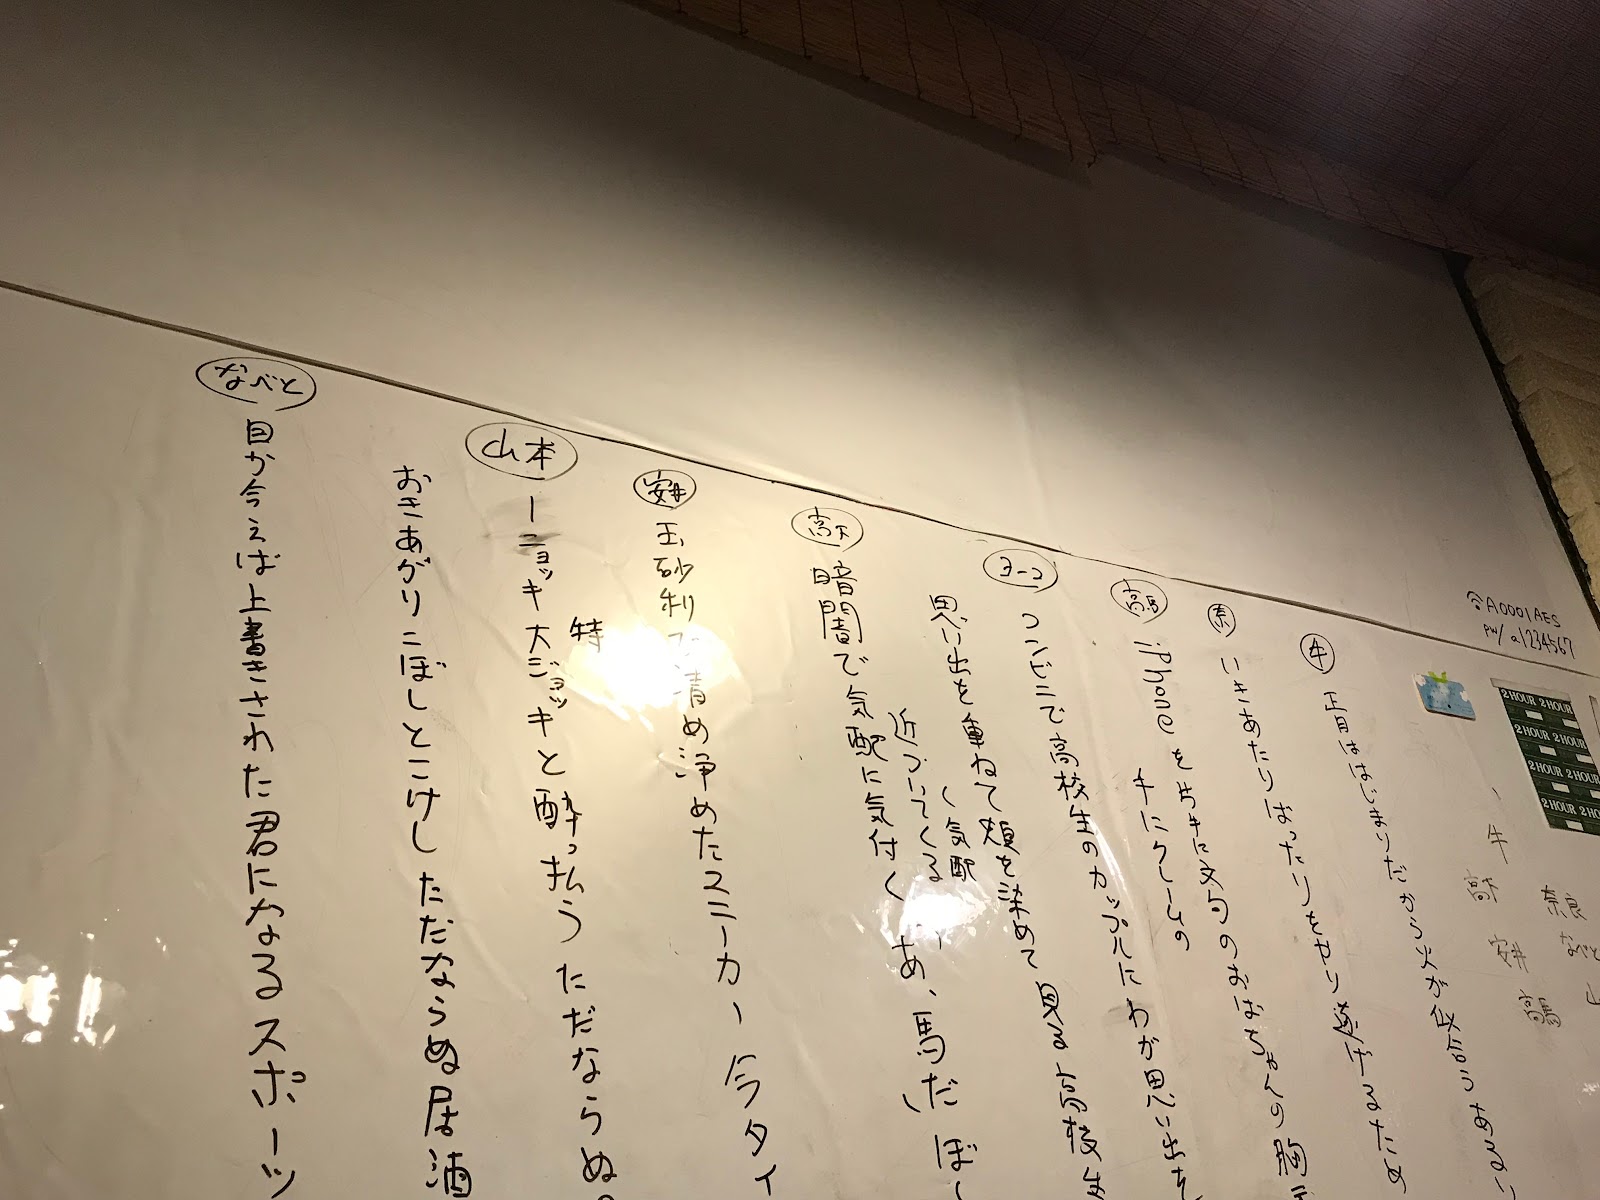 A0001AES
pw/a1234567
2 HOUR 2 HOUR
2 HOUR 2 HOUR
2 HOUR 2 HOUR
2 HOUR 2 HO
牛
正目はじまりだから火が似合うある
奈
いきあたりばったりをやり遂げるため
高馬
iPhoneを片手に文句のおばちゃんの胸
手にクレームの
ヨーコ
コンビニで高校生のカップルにわが思い出を
思い出を重ねて頬を染めて見る高校生
高下
暗闇で気配に気付く あ、馬だ ぼ
近づいてくる
く気配
安井
玉砂利で清め浄めたスニーカー 今タイ
山本
特
ーニョッキ大ジョッキと酔っ払うただならぬ
おきあがりこぼしとこけしただならぬ居酒
なべと
目が合えば上書きされた君になるスポーツ
牛
高下
安井
高馬
奈良
なべと
山